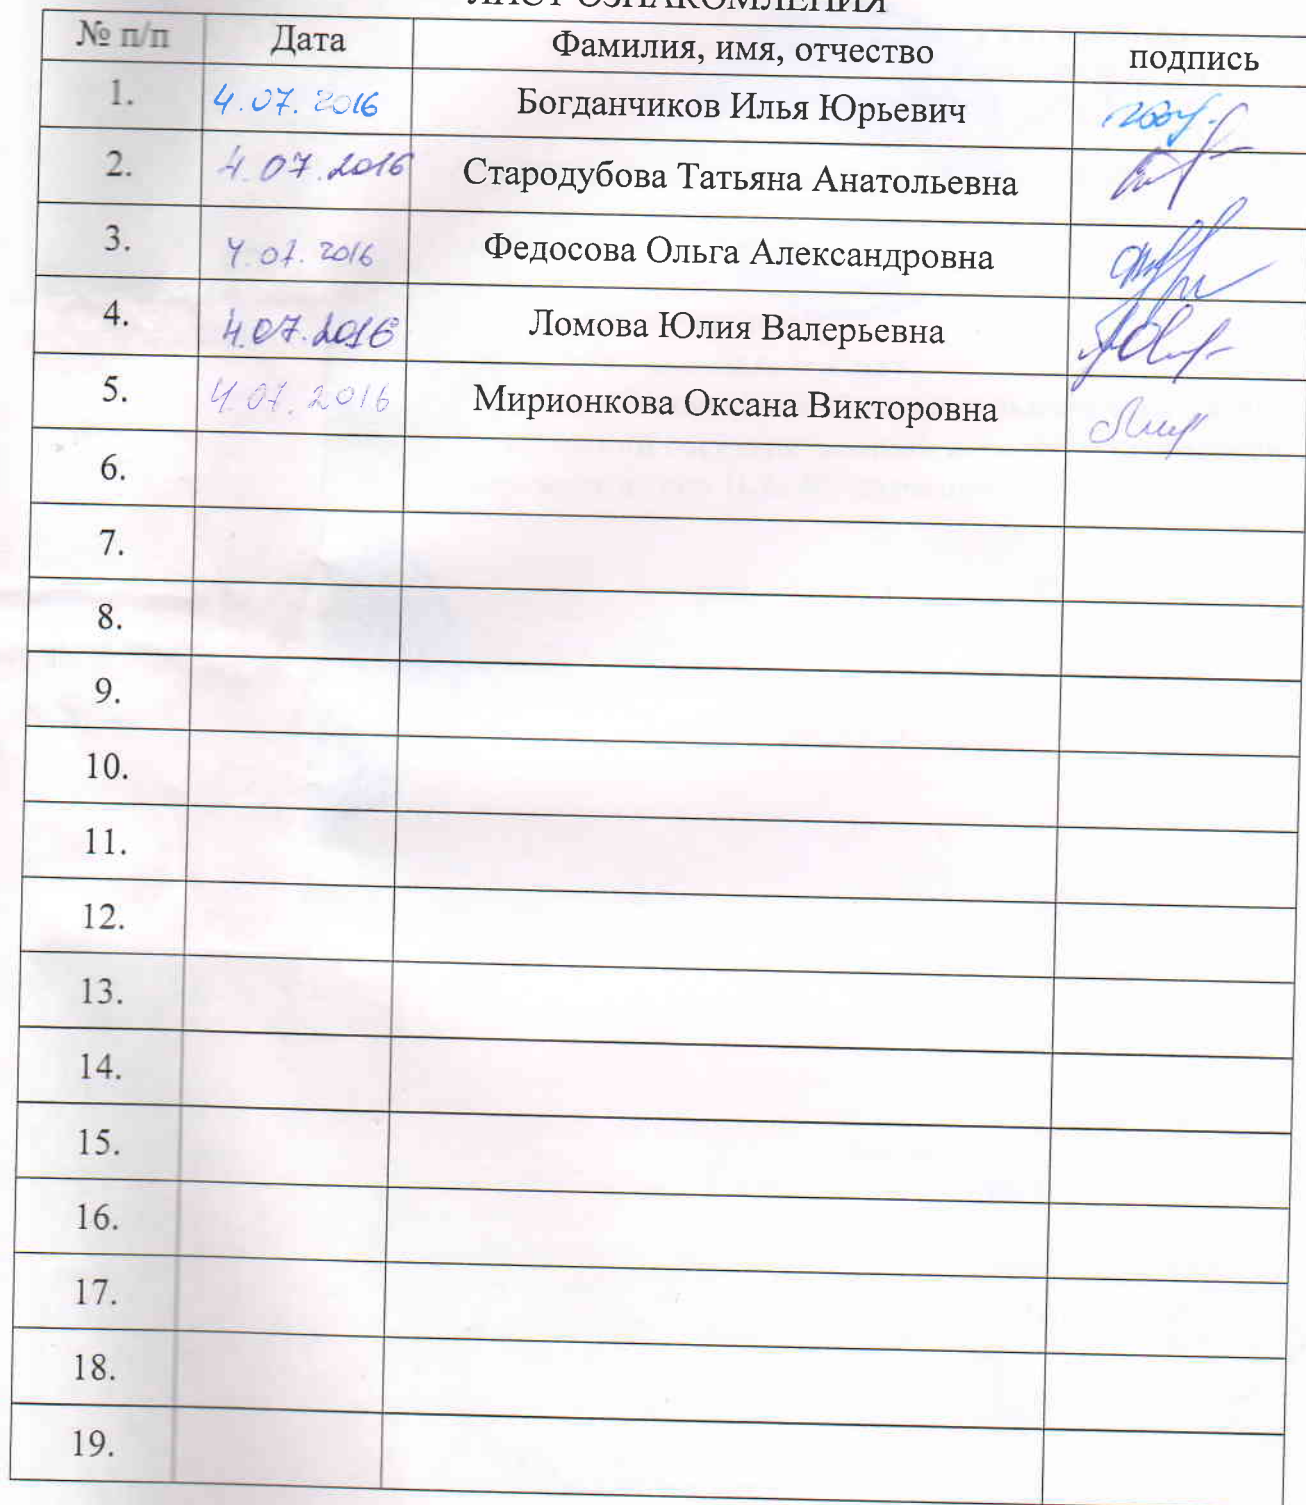 ЛИСТ ОЗНАКОМЛЕНИЯ
№ п/п Дата Фамилия, имя, отчество подпись
1. 4.07.2016 Богданчиков Илья Юрьевич
2. 4.07.2016 Стародубова Татьяна Анатольевна
3. 4.07.2016 Федосова Ольга Александровна
4. 4.07.2016 Ломова Юлия Валерьевна
5. 4.07.2016 Мирионкова Оксана Викторовна
6.
7.
8.
9.
10.
11.
12.
13.
14.
15.
16.
17.
18.
19.